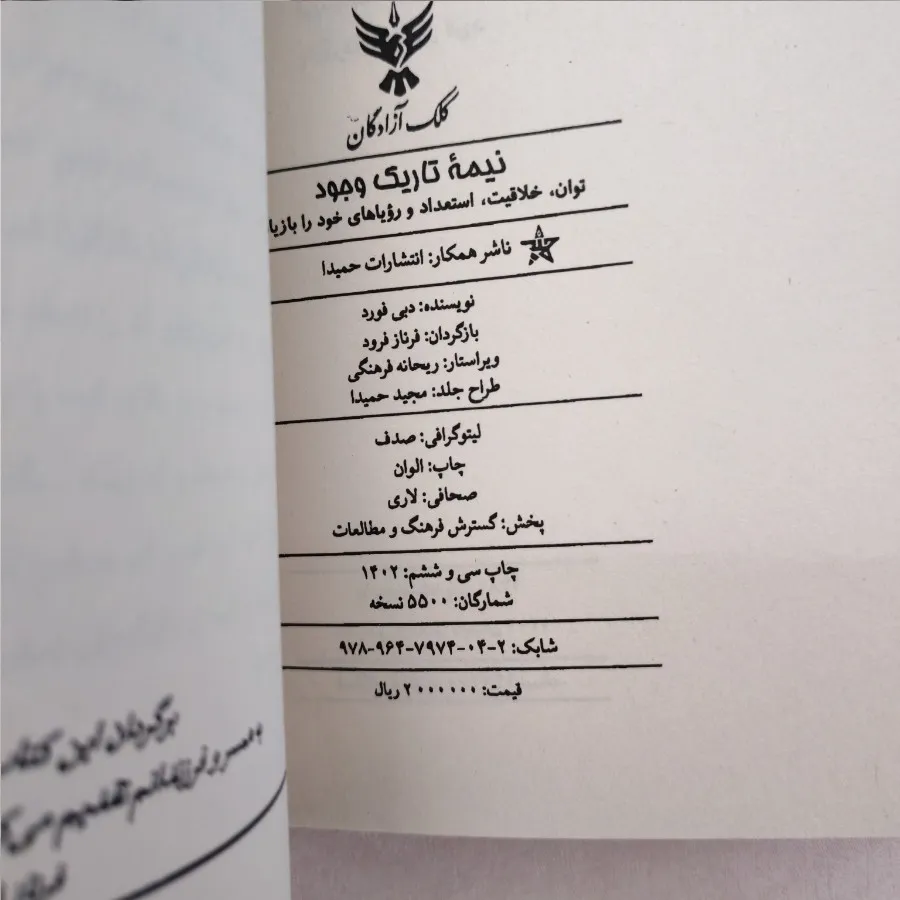 کلک آزادگان
نیمهٔ تاریک وجود
توان، خلاقیت، استعداد و رؤیاهای خود را بازیا
ناشر همکار: انتشارات حمیدا
نویسنده: دبی فورد
بازگردان: فرناز فرود
ویراستار: ریحانه فرهنگی
طراح جلد: مجید حمیدا
لیتوگرافی: صدف
چاپ: الوان
صحافی: لاری
پخش: گسترش فرهنگ و مطالعات
چاپ سی و ششم: ۱۴۰۲
شمارگان: ۵۵۰۰ نسخه
شابک: ۲-۰۴-۷۹۷۴-۹۶۴-۹۷۸
قیمت: ۲۰۰۰۰۰۰ ریال
برگردان این
همسر و فرزندانم تقدیم می